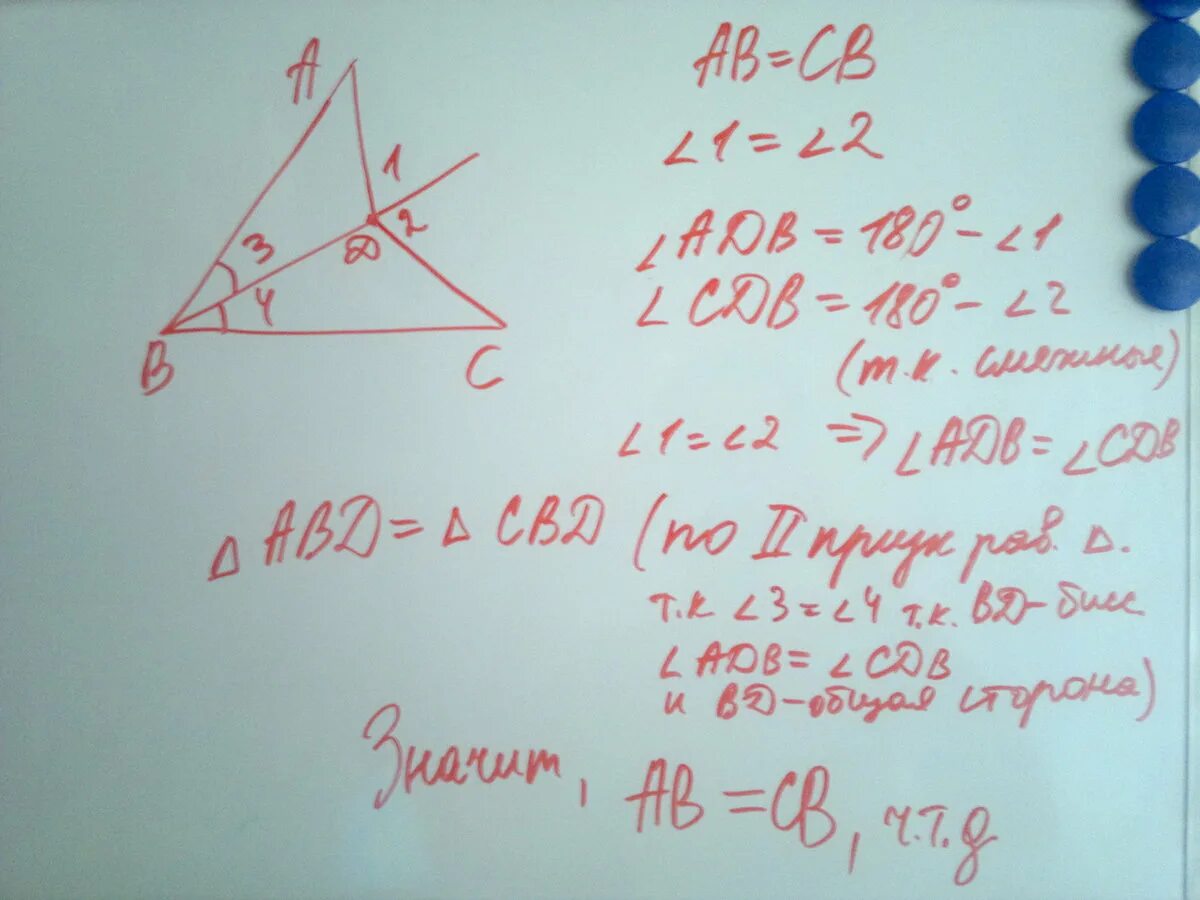 A
1
2
D
3
4
B
C
AB = CB
∠1 = ∠2
∠ADB = 180° - ∠1
∠CDB = 180° - ∠2
(т.к. смежные)
∠1 = ∠2 => ∠ADB = ∠CDB
Δ ABD = Δ CBD (по II призн рав. Δ.
т.к ∠3 = ∠4 т.к. BD - бисс
∠ADB = ∠CDB
и BD - общая сторона)
Значит, AB = CB, ч.т.д